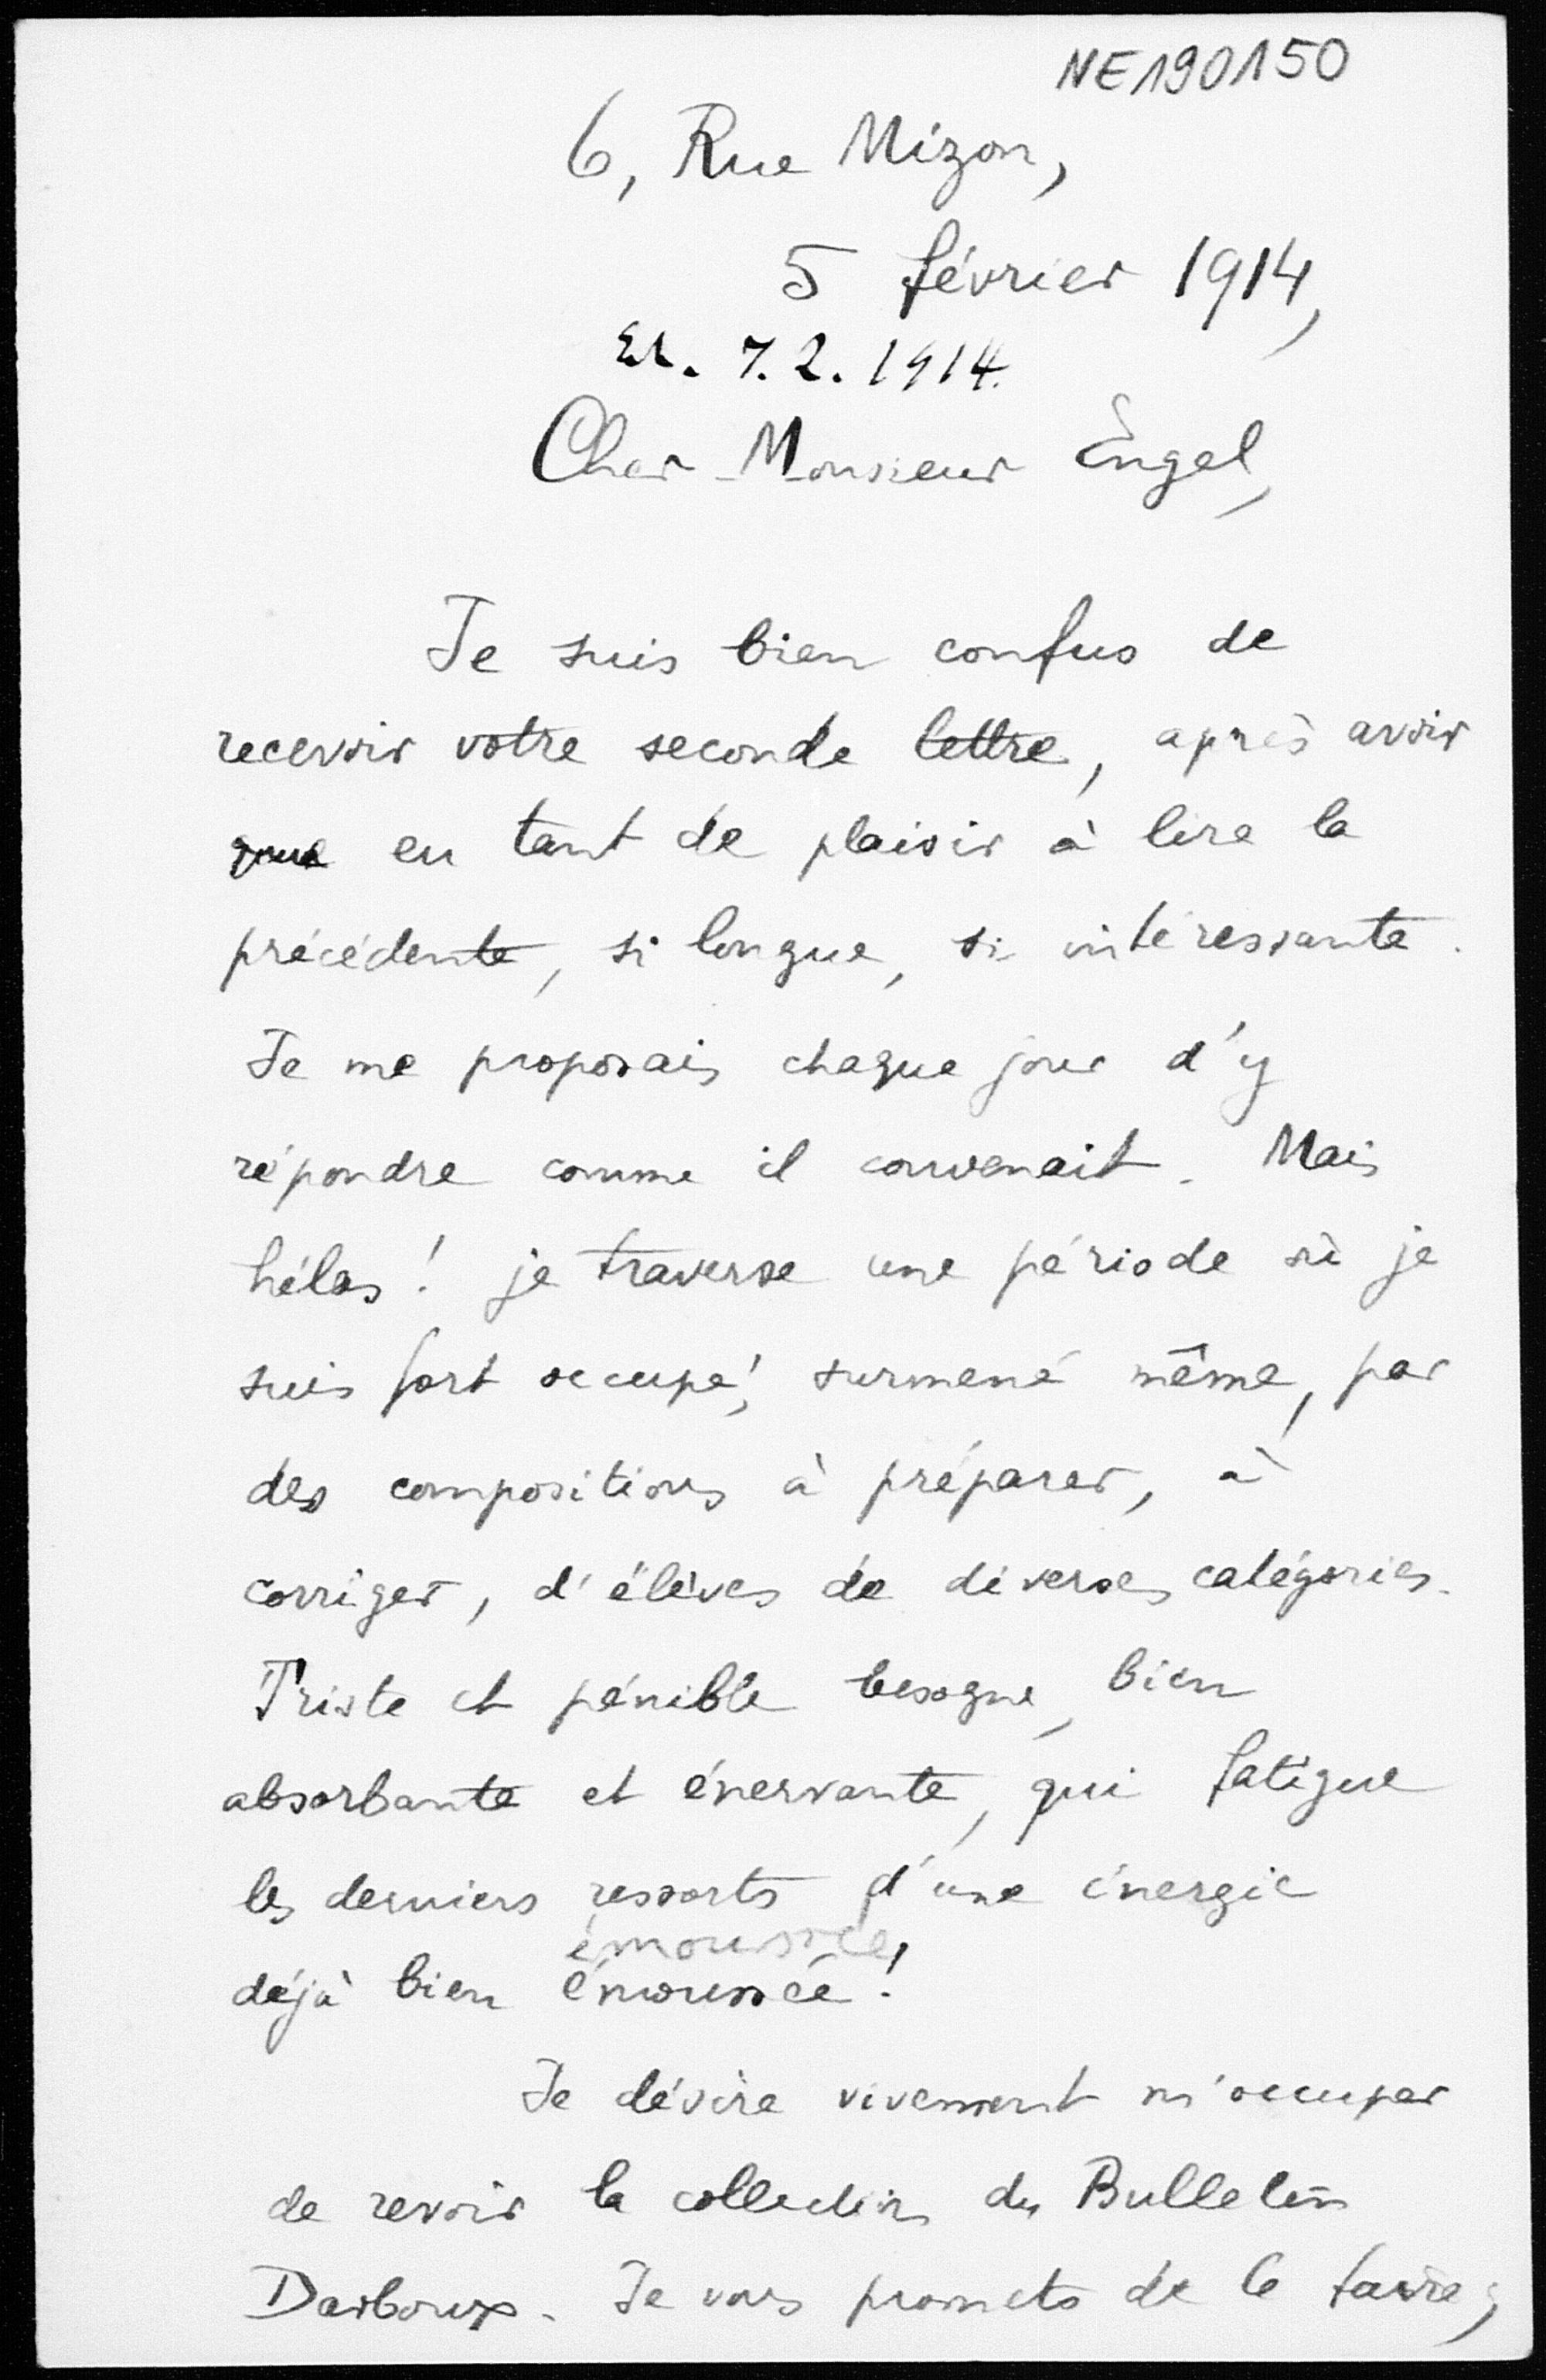 NE190150
6, Rue Mizon,
5 février 1914,
Er. 7.2.1914.
Cher Monsieur Engel,
Je suis bien confus de
recevoir votre seconde lettre, après avoir
eu tant de plaisir à lire la
précédente, si longue, si intéressante.
Je me proposais chaque jour d'y
répondre comme il convenait. Mais
hélas! je traverse une période où je
suis fort occupé, surmené même, par
des compositions à préparer, à
corriger, d'élèves de diverses catégories.
Triste et pénible besogne, bien
absorbante et énervante, qui fatigue
les derniers ressorts d'une énergie
émoussée,
déjà bien émoussée!
Je désire vivement m'occuper
de revoir la collection du Bulletin
Darboux. Je vous promets de le faire;